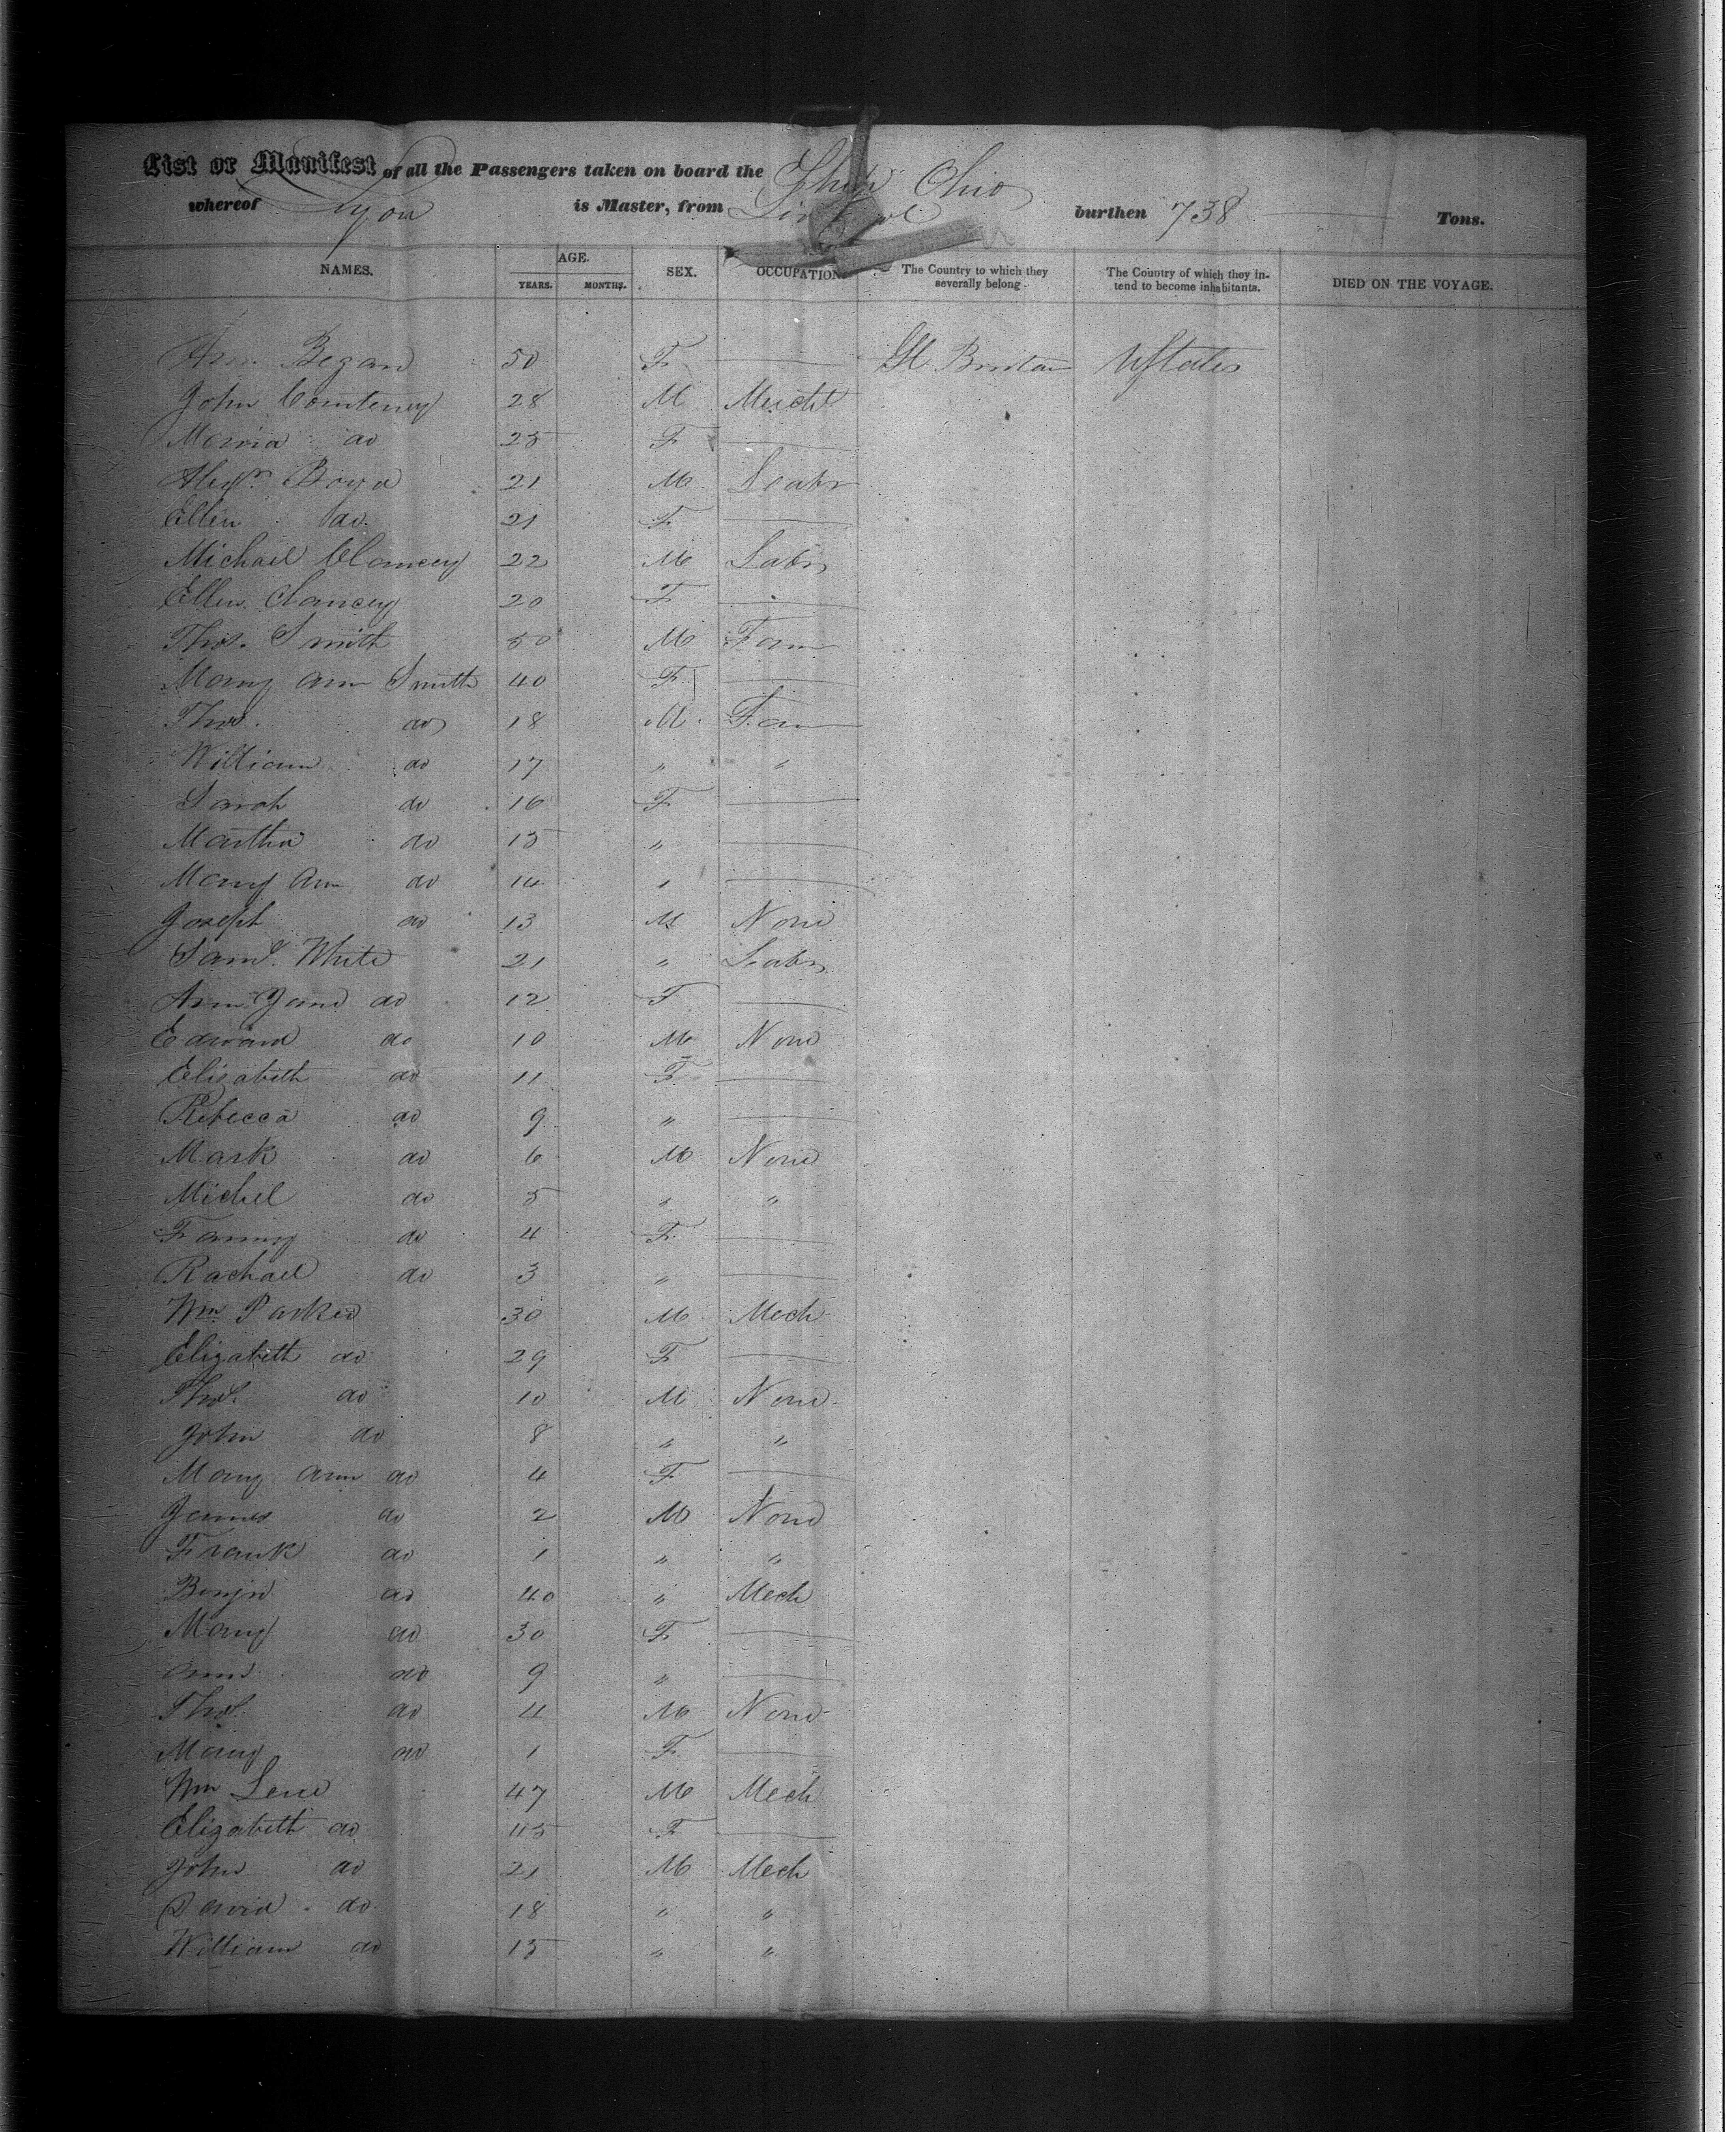 List or Manifest of all the Passengers taken on board the Ship Ohio
whereof Lyon is Master, from burthen 738 Tons.
NAMES. AGE. YEARS. MONTHS. SEX. OCCUPATION. The Country to which they severally belong. The Country of which they intend to become inhabitants. DIED ON THE VOYAGE.
Ann Began 50 F Gt Britain UStates
John Courteney 28 M Mercht
Maria do 25 F
Alexr. Boyd 21 M Labr
Ellen do 21 F
Michael Clancey 22 M Labr
Ellen Clancey 20 F
Thos. Smith 50 M Farm
Mary Ann Smith 40 F
Thos. do 18 M Farm
William do 17 " "
Sarah do 16 F
Martha do 15 "
Mary Ann do 14 "
Joseph do 13 M None
Saml. White 21 " Labr
Ann Jane do 12 F
Edward do 10 M None
Elisabeth do 11 F
Rebecca do 9 "
Mark do 6 M None
Michel do 5 " "
Fanny do 4 F
Rachael do 3 "
Wm Parker 30 M Mech
Elizabeth do 29 F
Thos. do 10 M None
John do 8 " "
Mary Ann do 4 F
James do 2 M None
Frank do 1 " "
Benjn do 40 " Mech
Mary do 30 F
Ann do 9 "
Thos. do 4 M None
Mary do 1 F
Wm 47 M Mech
Elizabeth do 45 F
John do 21 M Mech
David do 18 " "
William do 15 " "